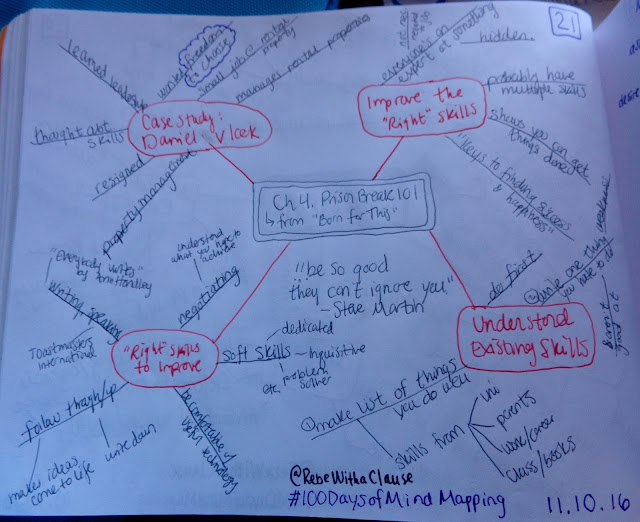 21
Ch 4. Prison Break 101
↳ from "Born for This"
Case study:
Daniel Vlcek
learned leadership
worked
freedom
to choose
small job @ rental
property
manages rental properties
thought abt
skills
resigned
property management
Improve the
"Right" skills
everyone's an
expert at something
hidden
probably have
multiple skills
shows you can get
things done
"Keys to finding success
& happiness"
Understand
Existing Skills
do first
① make list of things
you do well
skills from
uni
parents
work/career
class/books
② write one thing
you hate to do
aren't
good at
"Right" skills
to Improve
writing, speaking
"Everybody writes"
by Ann Handley
Toastmasters
International
negotiating
understand
what you have to
achieve
soft skills
dedicated
inquisitive
problem
solver
etc.
follow through/up
makes ideas
come to life
write down
be comfortable w/
useful technology
"be so good
they can't ignore you"
- Steve Martin
@RebeWithaClause
#100DaysofMindMapping
11.10.16